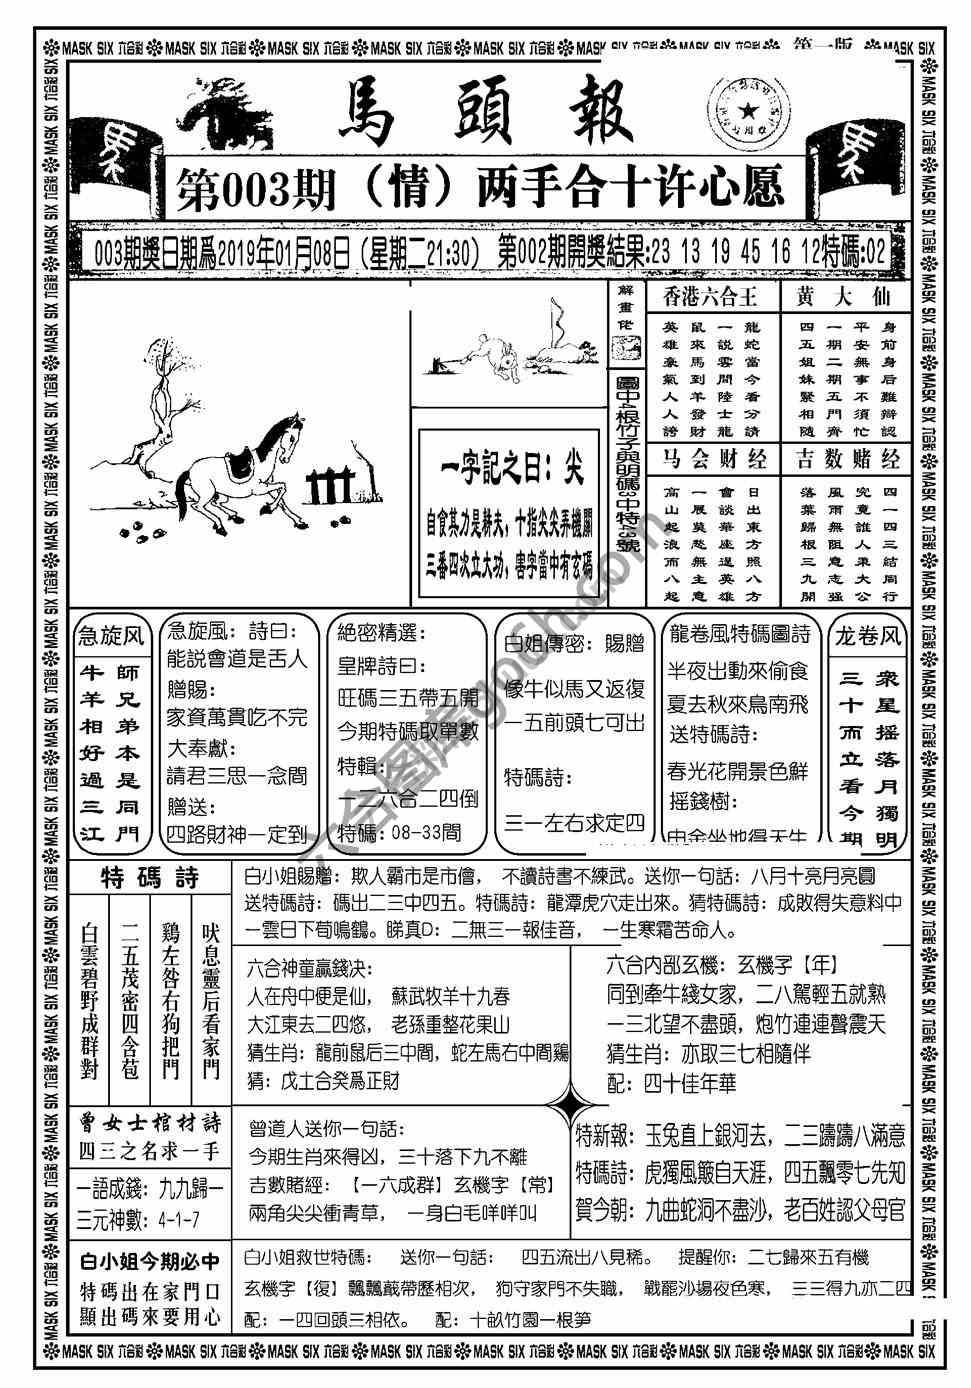 MASK SIX 六合彩 MASK SIX 六合彩 MASK SIX 六合彩 MASK SIX 六合彩 MASK SIX 六合彩 MASK SIX
第一版
馬頭報
第003期（情）两手合十许心愿
003期獎日期爲2019年01月08日（星期二21:30）第002期開獎結果:23 13 19 45 16 12特碼:02
解畫佬
圖中4根竹子與明碼3中特43號
一字記之曰：尖
自食其力是耕夫，十指尖尖弄機關
三番四次立大功，害字當中有玄碼
香港六合王
龍蛇當今看分請
一說雲問陸士龍
鼠來馬到羊發財
英雄豪氣人人誇
黄大仙
身前身后難辯認
平安無事不須忙
一期二期五門齊
四五姐妹緊相隨
马会财经
日出東方照八方
會談華座逞英雄
一展莫愁無主意
高山起浪而八起
吉数赌经
四一四三結同行
究竟誰人秉大公
風雨無阻意志强
落葉歸根三九開
急旋风
師兄弟本是同門
牛羊相好過三江
急旋风：詩曰：
能說會道是舌人
贈賜：
家資萬貫吃不完
大奉獻：
請君三思一念間
贈送：
四路財神一定到
絕密精選：
皇牌詩曰：
旺碼三五帶五開
今期特碼取單數
特輯：
一二六合二四倒
特碼：08-33間
白姐傳密：賜贈
像牛似馬又返復
一五前頭七可出
特碼詩：
三一左右求定四
龍卷風特碼圖詩
半夜出動來偷食
夏去秋來鳥南飛
送特碼詩：
春光花開景色鮮
摇錢樹：
中金坐地得天生
龙卷风
衆星摇落月獨明
三十而立看今期
特碼詩
吠息靈后看家門
鷄左咎右狗把門
二五茂密四含苞
白雲碧野成群對
白小姐賜贈：欺人霸市是市儈， 不讀詩書不練武。送你一句話：八月十亮月亮圓
送特碼詩：碼出二三中四五。特碼詩：龍潭虎穴走出來。猜特碼詩：成敗得失意料中
一雲日下荀鳴鶴。睇真D：二無三一報佳音， 一生寒霜苦命人。
六合神童贏錢决：
人在舟中便是仙， 蘇武牧羊十九春
大江東去二四悠， 老孫重整花果山
猜生肖：龍前鼠后三中間，蛇左馬右中間鷄
猜：戊土合癸爲正財
六合内部玄機：玄機字【年】
同到牽牛綫女家，二八駕輕五就熟
一三北望不盡頭，炮竹連連聲震天
猜生肖：亦取三七相隨伴
配：四十佳年華
曾女士棺材詩
四三之名求一手
一語成錢：九九歸一
三元神數：4-1-7
曾道人送你一句話：
今期生肖來得凶，三十落下九不離
吉數賭經：【一六成群】玄機字【常】
兩角尖尖衝青草， 一身白毛咩咩叫
特新報：玉兔直上銀河去，二三躊躊八滿意
特碼詩：虎獨風簸自天涯，四五飄零七先知
賀今朝：九曲蛇洞不盡沙，老百姓認父母官
白小姐今期必中
特碼出在家門口
顯出碼來要用心
白小姐救世特碼： 送你一句話： 四五流出八見稀。 提醒你：二七歸來五有機
玄機字【復】飄飄戴帶歷相次， 狗守家門不失職， 戰罷沙場夜色寒， 三三得九亦二四
配：一四回頭三相依。 配：十畝竹園一根笋
MASK SIX 六合彩 MASK SIX 六合彩 MASK SIX 六合彩 MASK SIX 六合彩 MASK SIX 六合彩 MASK SIX 六合彩 MASK SIX 六合彩 MASK SIX 六合彩 MASK SIX
六合图库gocdh.com